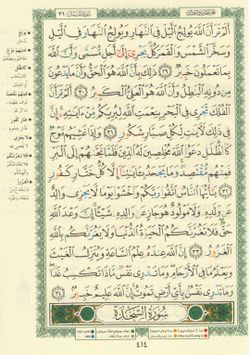 أَلَمْ تَرَ أَنَّ اللَّهَ يُولِجُ اللَّيْلَ فِي النَّهَارِ وَيُولِجُ النَّهَارَ فِي اللَّيْلِ
وَسَخَّرَ الشَّمْسَ وَالْقَمَرَ كُلٌّ يَجْرِي إِلَى أَجَلٍ مُسَمًّى وَأَنَّ اللَّهَ
بِمَا تَعْمَلُونَ خَبِيرٌ ﴿٢٩﴾ ذَلِكَ بِأَنَّ اللَّهَ هُوَ الْحَقُّ وَأَنَّ مَا يَدْعُونَ
مِنْ دُونِهِ الْبَاطِلُ وَأَنَّ اللَّهَ هُوَ الْعَلِيُّ الْكَبِيرُ ﴿٣٠﴾ أَلَمْ تَرَ أَنَّ
الْفُلْكَ تَجْرِي فِي الْبَحْرِ بِنِعْمَتِ اللَّهِ لِيُرِيَكُمْ مِنْ آيَاتِهِ إِنَّ
فِي ذَلِكَ لَآيَاتٍ لِكُلِّ صَبَّارٍ شَكُورٍ ﴿٣١﴾ وَإِذَا غَشِيَهُمْ مَوْجٌ
كَالظُّلَلِ دَعَوُا اللَّهَ مُخْلِصِينَ لَهُ الدِّينَ فَلَمَّا نَجَّاهُمْ إِلَى الْبَرِّ
فَمِنْهُمْ مُقْتَصِدٌ وَمَا يَجْحَدُ بِآيَاتِنَا إِلَّا كُلُّ خَتَّارٍ كَفُورٍ
﴿٣٢﴾ يَا أَيُّهَا النَّاسُ اتَّقُوا رَبَّكُمْ وَاخْشَوْا يَوْمًا لَا يَجْزِي وَالِدٌ
عَنْ وَلَدِهِ وَلَا مَوْلُودٌ هُوَ جَازٍ عَنْ وَالِدِهِ شَيْئًا إِنَّ وَعْدَ اللَّهِ
حَقٌّ فَلَا تَغُرَّنَّكُمُ الْحَيَاةُ الدُّنْيَا وَلَا يَغُرَّنَّكُمْ بِاللَّهِ
الْغَرُورُ ﴿٣٣﴾ إِنَّ اللَّهَ عِنْدَهُ عِلْمُ السَّاعَةِ وَيُنَزِّلُ الْغَيْثَ
وَيَعْلَمُ مَا فِي الْأَرْحَامِ وَمَا تَدْرِي نَفْسٌ مَاذَا تَكْسِبُ غَدًا
وَمَا تَدْرِي نَفْسٌ بِأَيِّ أَرْضٍ تَمُوتُ إِنَّ اللَّهَ عَلِيمٌ خَبِيرٌ ﴿٣٤﴾
سُورَةُ السَّجْدَةِ
٤١٤